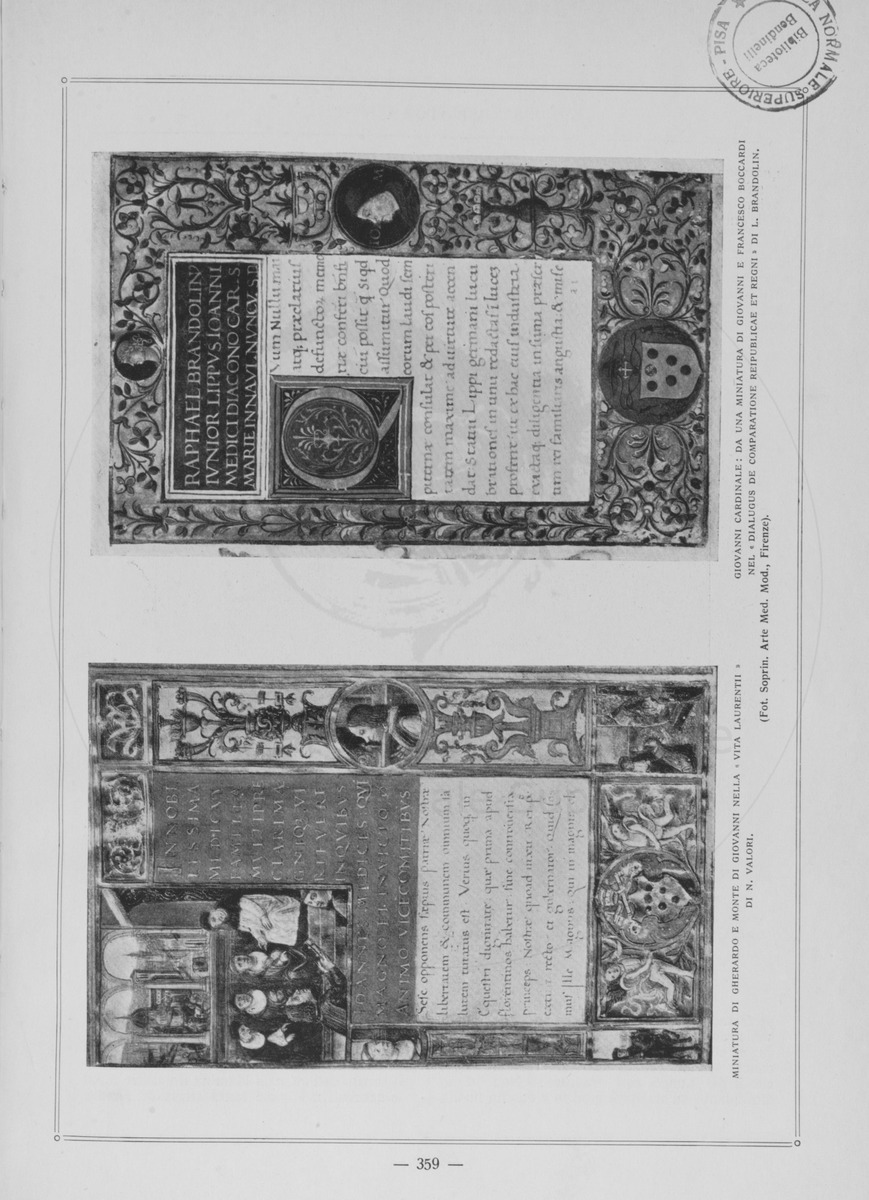 SUPERIORE - PISA
NORMALE
Biblioteca
Bendinelli
RAPHAEL BRANDOLINV
IVNIOR LIPPVS IOANNI
MEDICI DIACONO CAR. S
MARIE IN NAVI. NVNCV. S. P.
um Nullum
utq; præclarius
defunctos
cui possit q̃ Siqd
assumitur Quod
eorum laudi sem
piternæ consulat & per eos posteri
tatem maxime ad uirtutem accen
dat Statui Lippi germani lucu
brationes in unū redactas ī luces
proferre ut ex hac eius industria,
exactaq; diligentia in summa præser
tim rei familiaris angustia, & mise
GIOVANNI CARDINALE: DA UNA MINIATURA DI GIOVANNI E FRANCESCO BOCCARDI
NEL « DIALUGUS DE COMPARATIONE REIPUBLICAE ET REGNI » DI L. BRANDOLIN.
(Fot. Soprin. Arte Med. Mod., Firenze).
IN NOBI
LISSIMA
MEDICUM
FAMILIA
MULTI FUE
CLARI MA
GNIQ; VI
IN QVIBUS
MAGNO
ANIMO VICECOMITIBVS
Sese opponens sæpius patriæ Nostræ
libertatem & communem omnium sa
lutem tutatus est Verius quoq; in
Equestri dignitate quæ prima apud
florentinos habetur sine controuersia
princeps Nostræ quoad uixit Rei p
rector et gubernator
ille Magnus, qui in magnis
MINIATURA DI GHERARDO E MONTE DI GIOVANNI NELLA « VITA LAURENTII »
DI N. VALORI.
— 359 —